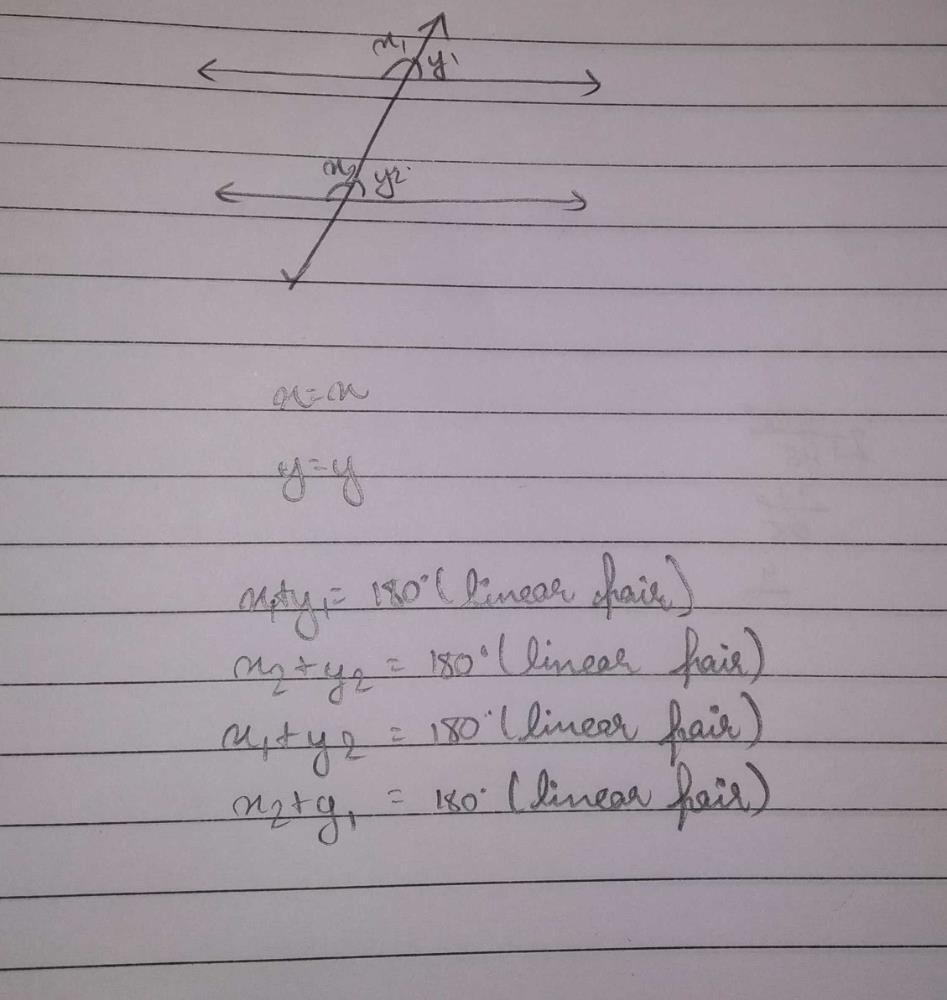 x₁ y₁
x₂ y₂
x=x
y=y
x₁+y₁= 180° (linear pair)
x₂+y₂ = 180° (linear pair)
x₁+y₂ = 180° (linear pair)
x₂+y₁ = 180° (linear pair)